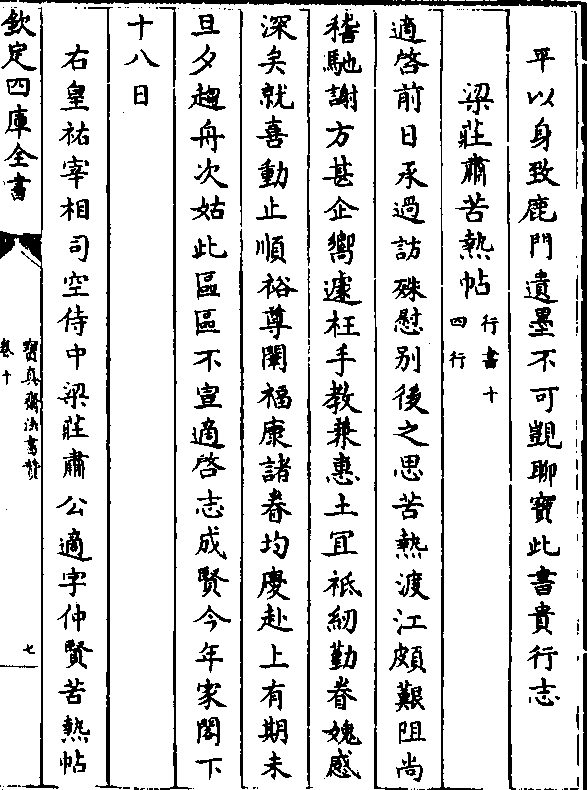 平以身致鹿門遺墨不可覬聊寶此書貴行志
梁莊肅苦熱帖行書十四行
適啓前日承過訪殊慰別後之思苦熱渡江頗艱阻尚
稽馳謝方甚企嚮遽枉手教兼惠土宜祗紉勤眷媿感
深矣就喜動止順裕尊閫福康諸眷均慶赴上有期未
旦夕趨舟次姑此區區不宣適啓志成賢今年家閣下
十八日
右皇祐宰相司空侍中梁莊肅公適字仲賢苦熱帖
欽定四庫全書
寶真齋法書贊
卷十
七